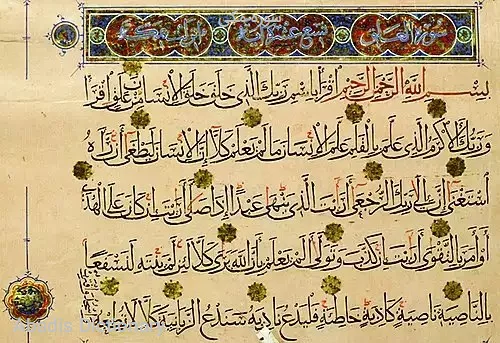 سورة العلق تسع عشرة آية
بسم الله الرحمن الرحيم اقرأ باسم ربك الذي خلق خلق الإنسان من علق اقرأ
وربك الأكرم الذي علم بالقلم علم الإنسان ما لم يعلم كلا إن الإنسان ليطغى أن رآه
استغنى إن إلى ربك الرجعى أرأيت الذي ينهى عبدا إذا صلى أرأيت إن كان على الهدى
أو أمر بالتقوى أرأيت إن كذب وتولى ألم يعلم بأن الله يرى كلا لئن لم ينته لنسفعا
بالناصية ناصية كاذبة خاطئة فليدع ناديه سندع الزبانية كلا لا تطعه
Abadis Dictionary